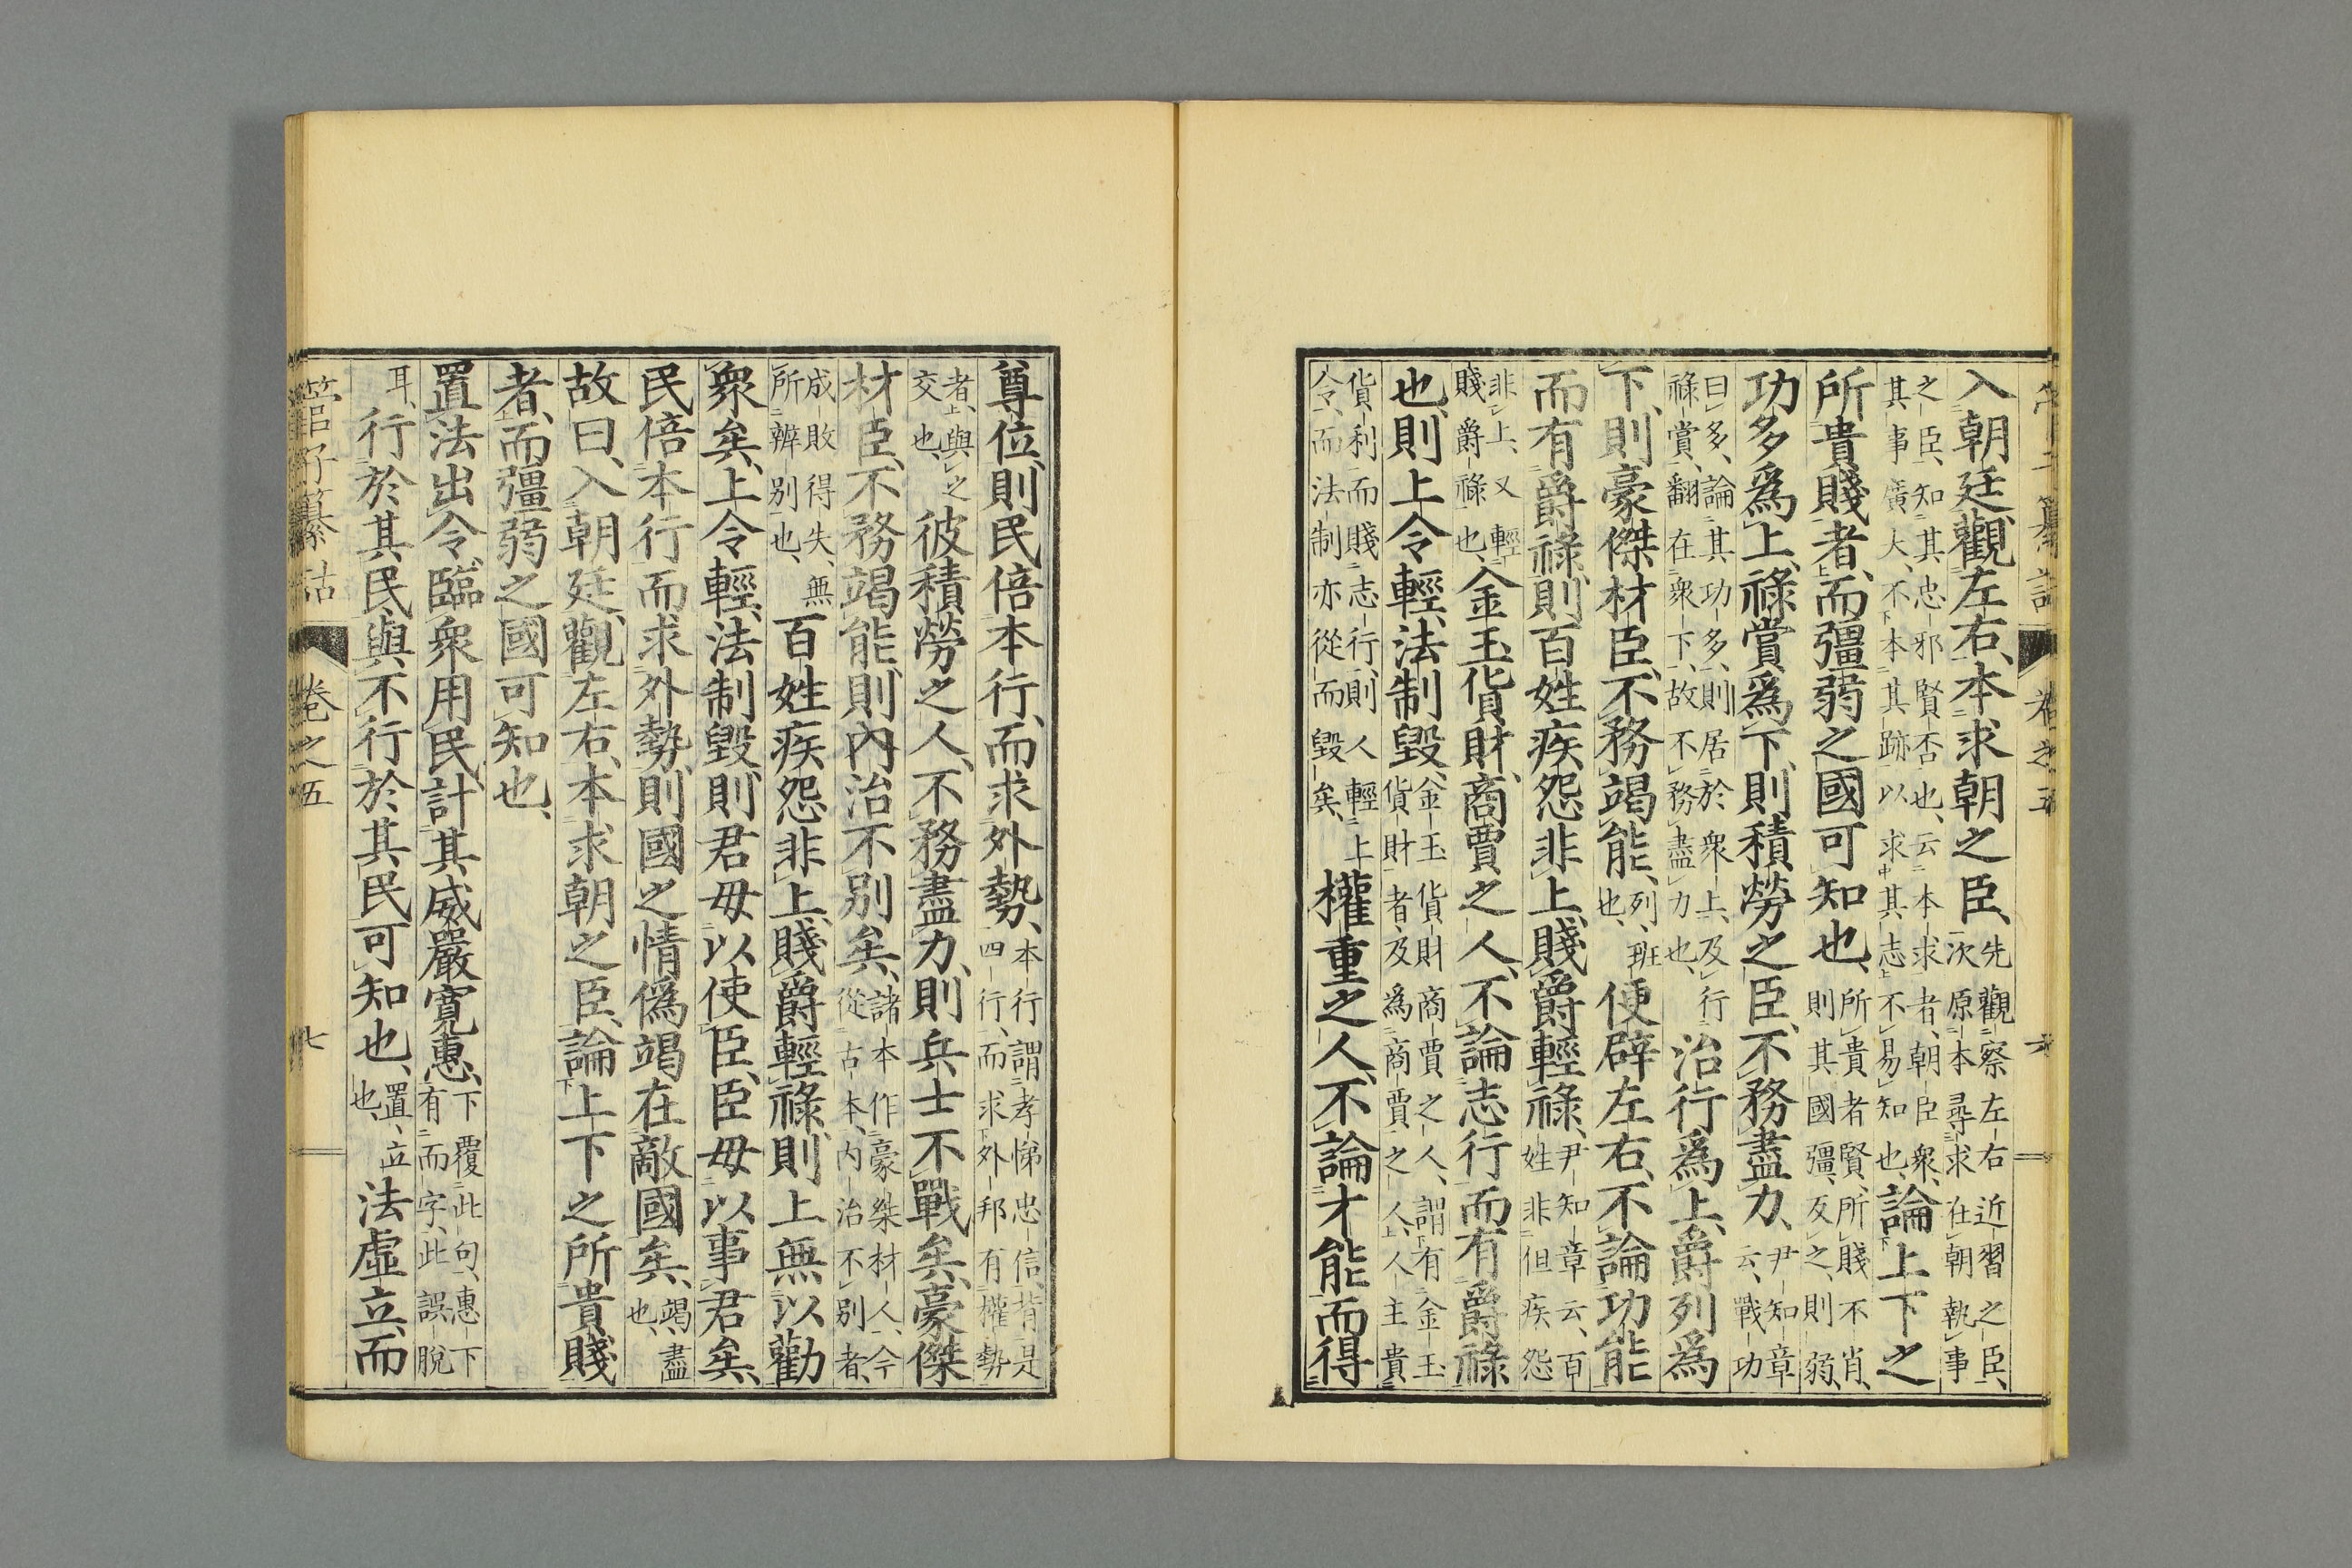 入朝廷、觀左右、本求朝之臣、先觀察左右近習之臣、次原本尋求在朝執事
之臣、知其忠邪賢否也、云本求者、朝臣衆、其事廣大、不本其跡以求其志、不易知也、論上下之
所貴賤者、而彊弱之國可知也、所貴者賢、所賤不肖、則其國彊、反之、則弱、
功多爲上、祿賞爲下、則積勞之臣、不務盡力、尹知章云、戰功
曰多、論其功多、則居於衆上、及行祿賞、翻在衆下、故不務盡力也、治行爲上、爵列爲
下、則豪傑材臣、不務竭能、列、班也、便辟左右、不論功能
而有爵祿、則百姓疾怨非上、賤爵輕祿、尹知章云、百姓非但疾怨
非上、又輕賤爵祿也、金玉貨財、商賈之人、不論志行而有爵祿
也、則上令輕、法制毀、金玉貨財商賈之人、謂有金玉貨財者、及為商賈之人、人主貴
貨利而賤志行、則人輕上令、而法制亦從而毀矣、權重之人、不論才能而得
尊位、則民倍本行、而求外勢、本行謂孝悌忠信、背是四行、而求外邦有權勢
者、與之交也、彼積勞之人、不務盡力、則兵士不戰矣、豪傑
材臣、不務竭能、則內治不別矣、諸本作豪桀材人、今從古本、內治不別者、
成敗得失、無所辨別也、百姓疾怨非上、賤爵輕祿、則上無以勸
衆矣、上令輕、法制毀、則君毋以使臣、臣毋以事君矣、
民倍本行而求外勢、則國之情僞竭在敵國矣、竭、盡也、
故曰、入朝廷、觀左右、本求朝之臣、論上下之所貴賤
者、而彊弱之國可知也、
置法出令、臨衆用民、計其威嚴寬惠、下覆此句、惠下有而字、此誤脫
耳、行於其民、與不行於其民可知也、置、立也、法虛立、而
管子纂詁 卷之五 七